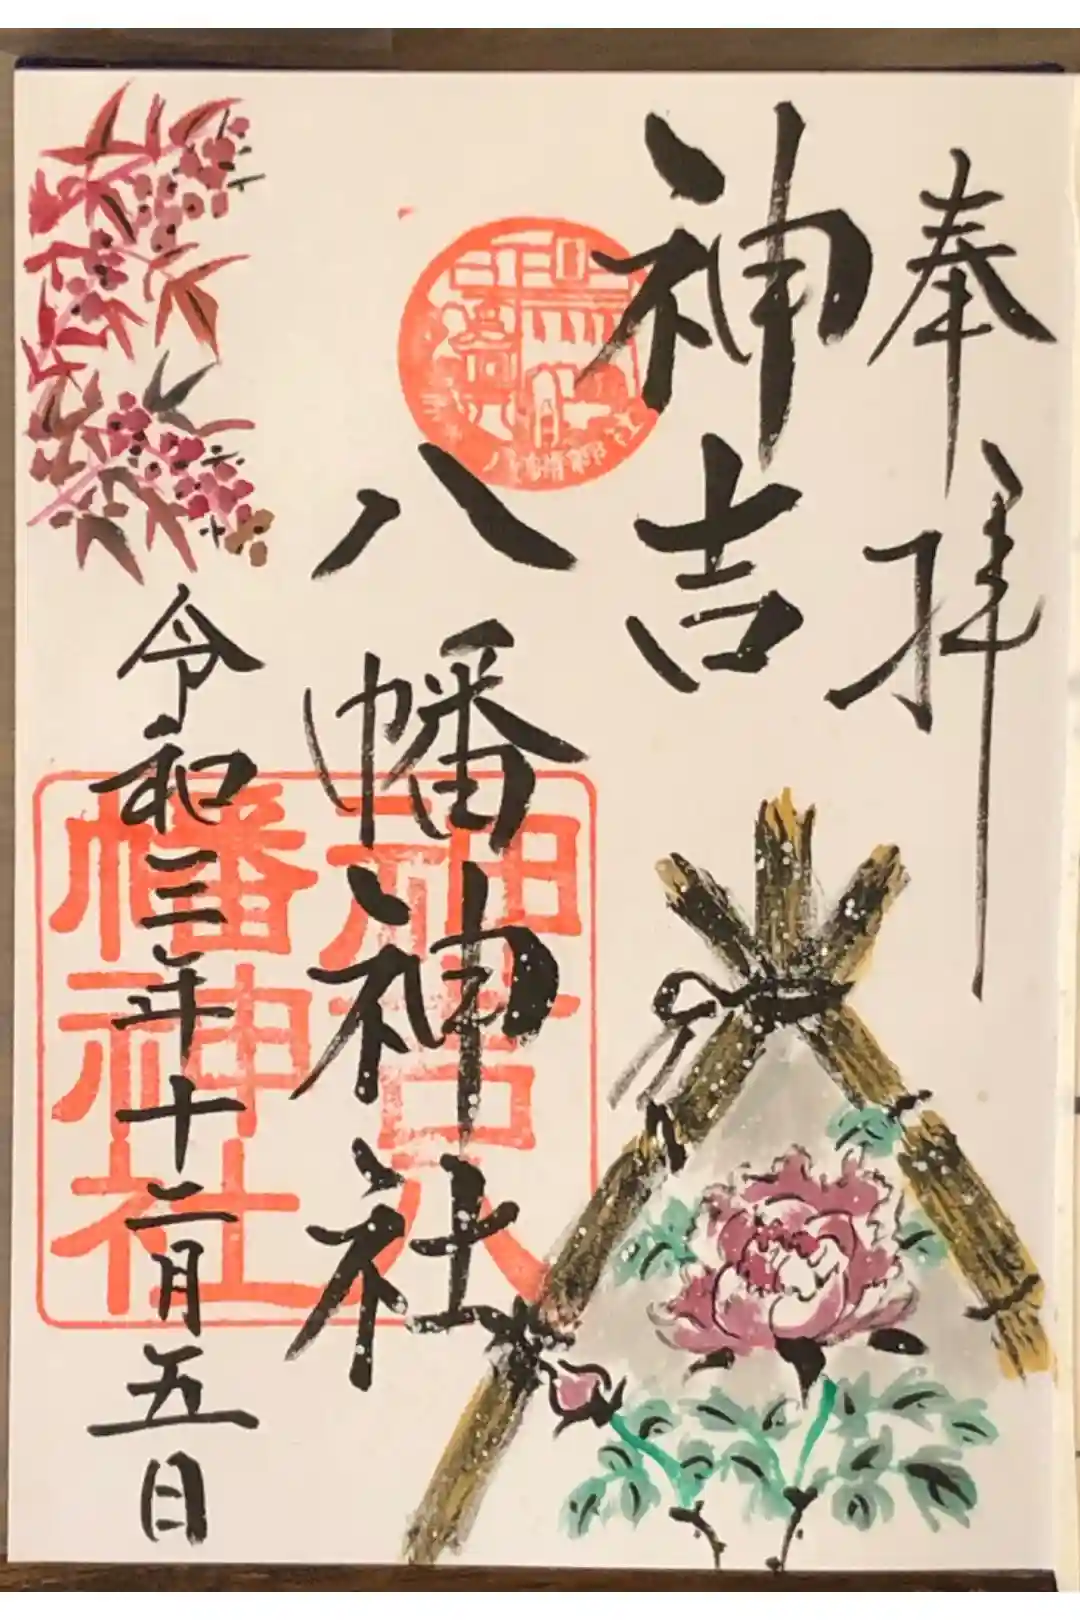 奉拝
神吉
八幡神社
令和三年十二月五日
八幡神社
神吉八
幡神社